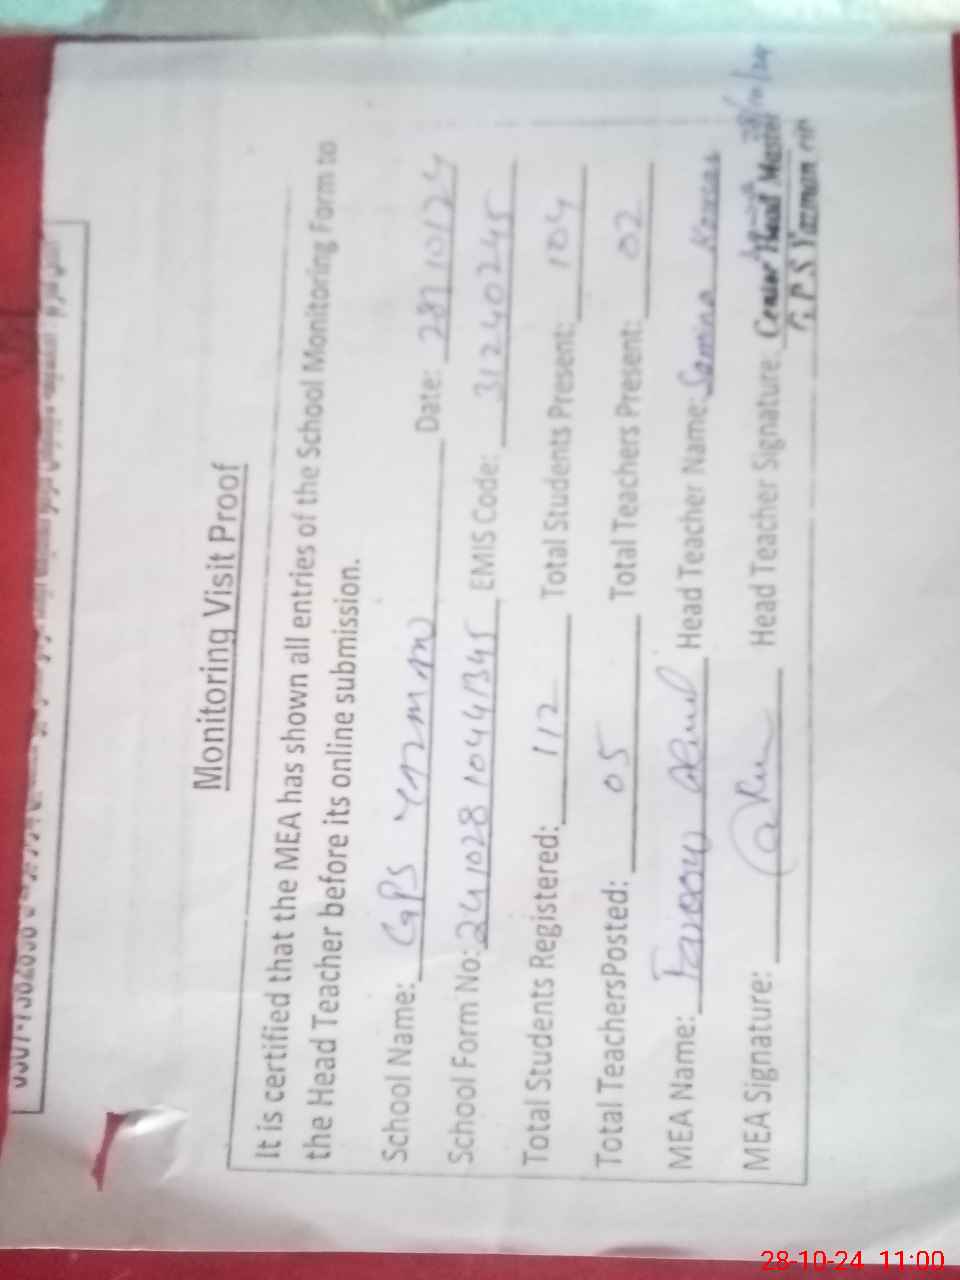 Monitoring Visit Proof
It is certified that the MEA has shown all entries of the School Monitoring Form to
the Head Teacher before its online submission.
School Name: GPS Yazman Date: 28/10/24
School Form No: EMIS Code: 31240245
Total Students Registered: 112 Total Students Present: 104
Total TeachersPosted: 05 Total Teachers Present: 02
MEA Name: Farooq Head Teacher Name: Samina
MEA Signature: Head Teacher Signature:
28/10/24
Center Head Master
G.P.S Yazman
28-10-24 11:00